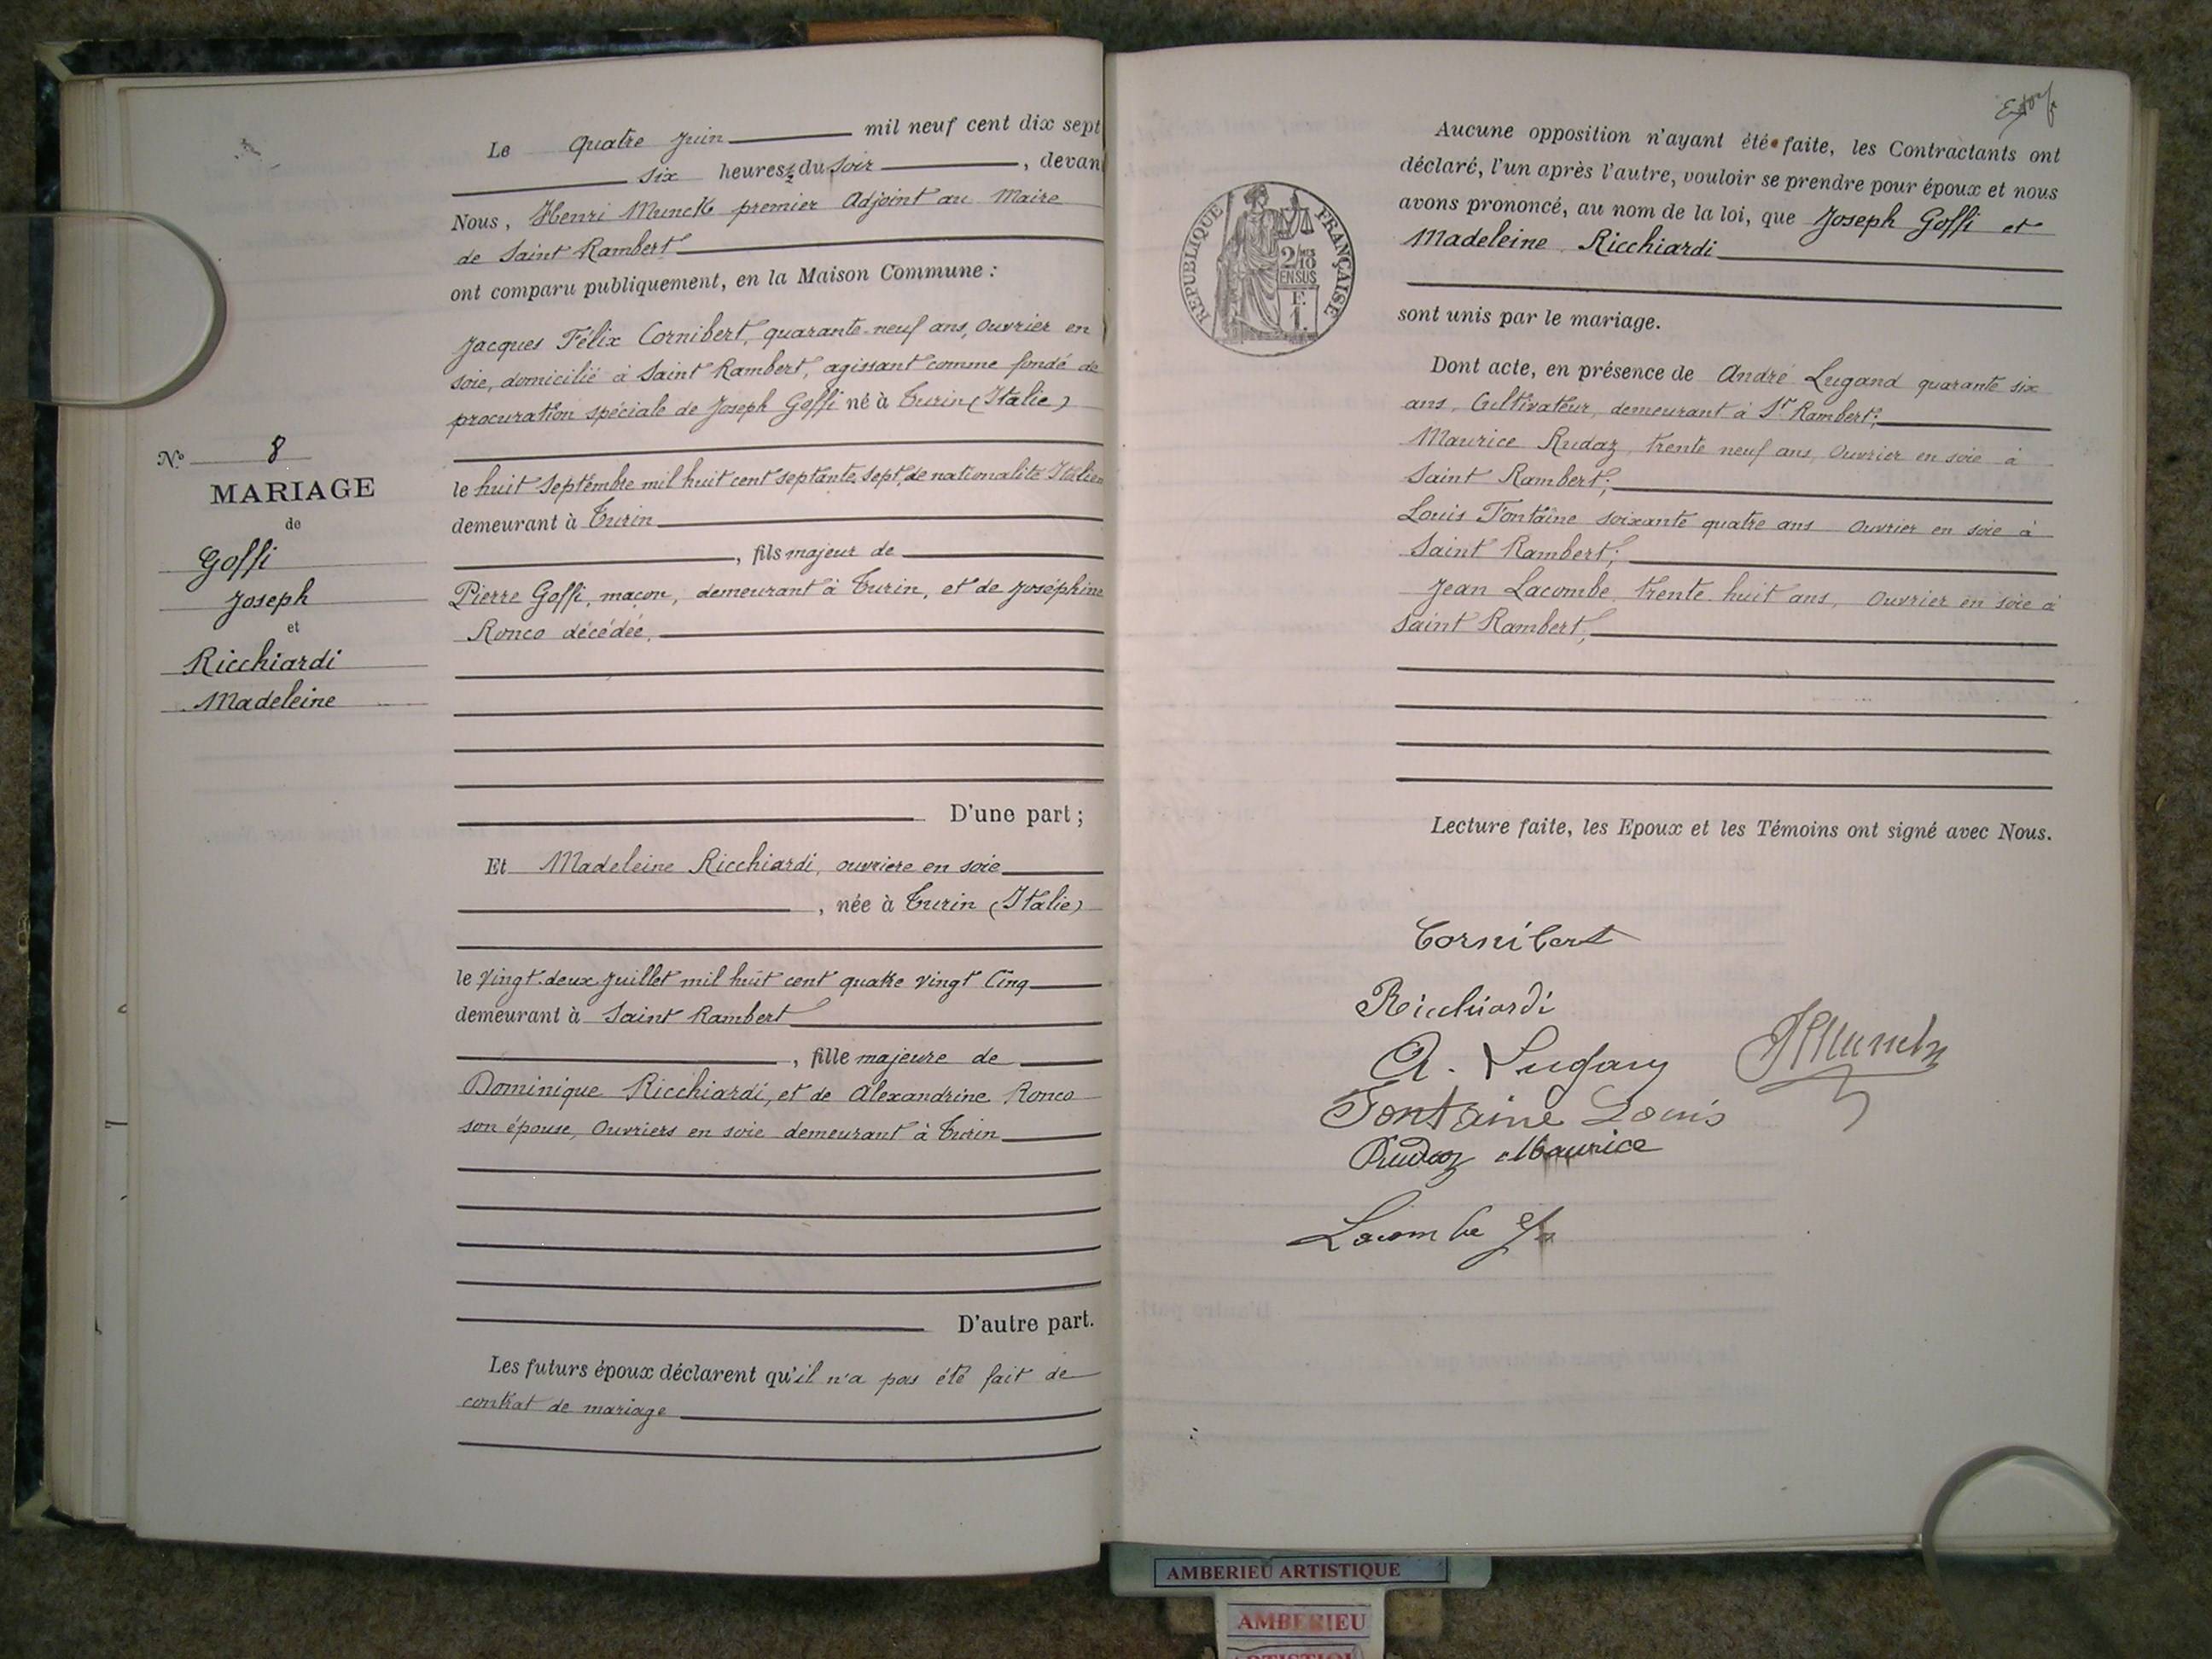 Le quatre Juin mil neuf cent dix sept
six heures ½ du soir, devan
Nous, Henri Munck premier Adjoint au Maire
de Saint Rambert
ont comparu publiquement, en la Maison Commune :
Jacques Félix Cornibert, quarante-neuf ans, Ouvrier en
soie, domicilié à Saint Rambert, agissant comme fondé de
procuration spéciale de Joseph Goffi né à Turin (Italie)
le huit Septembre mil huit cent septante sept, de nationalité Italien
demeurant à Turin
, fils majeur de
Pierre Goffi, maçon, demeurant à Turin, et de Joséphine
Ronco décédée,
D'une part ;
Et Madeleine Ricchiardi, ouvriere en soie
, née à Turin (Italie)
le vingt-deux Juillet mil huit cent quatre vingt Cinq
demeurant à Saint Rambert
, fille majeure de
Dominique Ricchiardi, et de Alexandrine Ronco
son épouse, Ouvriers en soie demeurant à Turin
D'autre part.
Les futurs époux déclarent qu'il n'a pas été fait de
contrat de mariage
N° 8
MARIAGE
de
Goffi
Joseph
et
Ricchiardi
Madeleine
Aucune opposition n'ayant été faite, les Contractants ont
déclaré, l'un après l'autre, vouloir se prendre pour époux et nous
avons prononcé, au nom de la loi, que Joseph Goffi et
Madeleine Ricchiardi
sont unis par le mariage.
REPUBLIQUE FRANÇAISE
2/10
EN SUS
F.
1.
Dont acte, en présence de André Lugand quarante six
ans, Cultivateur, demeurant à St Rambert;
Maurice Rudaz, trente neuf ans, Ouvrier en soie à
Saint Rambert;
Louis Fontaine soixante quatre ans Ouvrier en soie à
Saint Rambert;
Jean Lacombe, trente-huit ans, Ouvrier en soie à
Saint Rambert;
Lecture faite, les Epoux et les Témoins ont signé avec Nous.
Cornibert
Ricchiardi
A. Lugand
HMunck
Fontaine Louis
Rudaz Maurice
Lacombe
AMBERIEU ARTISTIQUE
AMBERIEU